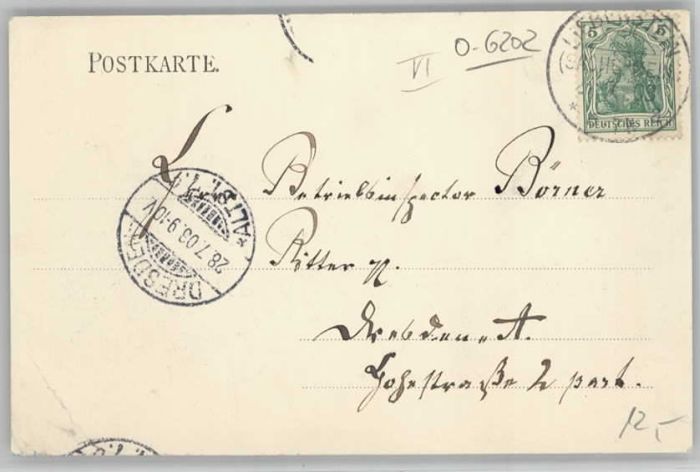 POSTKARTE.
VI
O-6202
5 5
DEUTSCHES REICH
LIEBENSTEIN
DRESDEN
*ALTST. 1.
28.7.03.9-10V
Betriebsinspector Börner
Ritter p.
Dresden A.
Hohestraße 2 part.
12,-